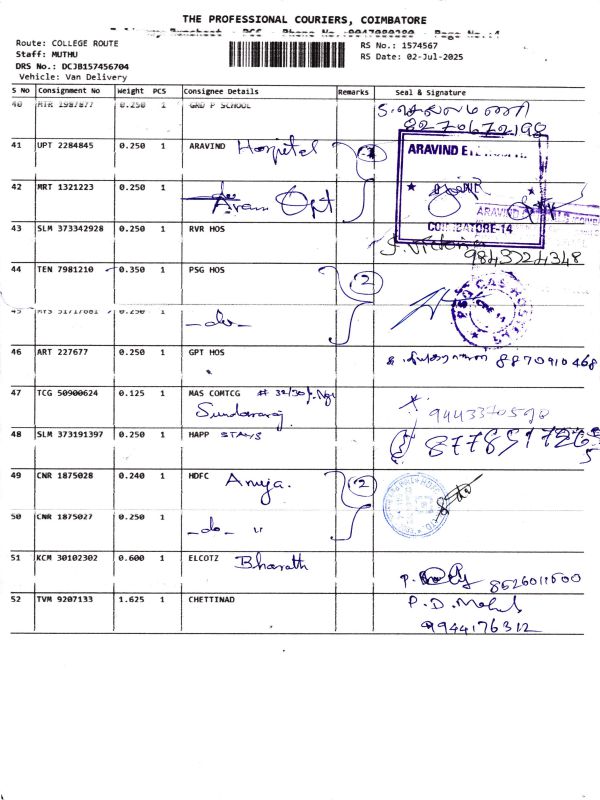 THE PROFESSIONAL COURIERS, COIMBATORE
Delivery Runsheet - PCC - Phone No.:9047080280 - Page No.:4
Route: COLLEGE ROUTE
Staff: MUTHU
DRS No.: DCJB157456704
Vehicle: Van Delivery
RS No.: 1574567
RS Date: 02-Jul-2025
S No Consignment No Weight PCS Consignee Details Remarks Seal & Signature
40 MTR 1987877 0.250 1 GRD P SCHOOL
8270672198
41 UPT 2284845 0.250 1 ARAVIND Hospital
ARAVIND EYE
42 MRT 1321223 0.250 1 Aravi Opt
COIMBATORE-14
43 SLM 373342928 0.250 1 RVR HOS
J. Victoria
9843224348
44 TEN 7981210 0.350 1 PSG HOS 2
45 0.250 1 -do-
46 ART 227677 0.250 1 GPT HOS 8870910468
47 TCG 50900624 0.125 1 MAS COMTCG
Sundararaj 9443370590
48 SLM 373191397 0.250 1 HAPP STAYS
49 CNR 1875028 0.240 1 HDFC Anuja. 2
50 CNR 1875027 0.250 1 -do- "
51 KCM 30102302 0.600 1 ELCOTZ Bharath
8526011500
52 TVM 9207133 1.625 1 CHETTINAD P.D.
9944176312